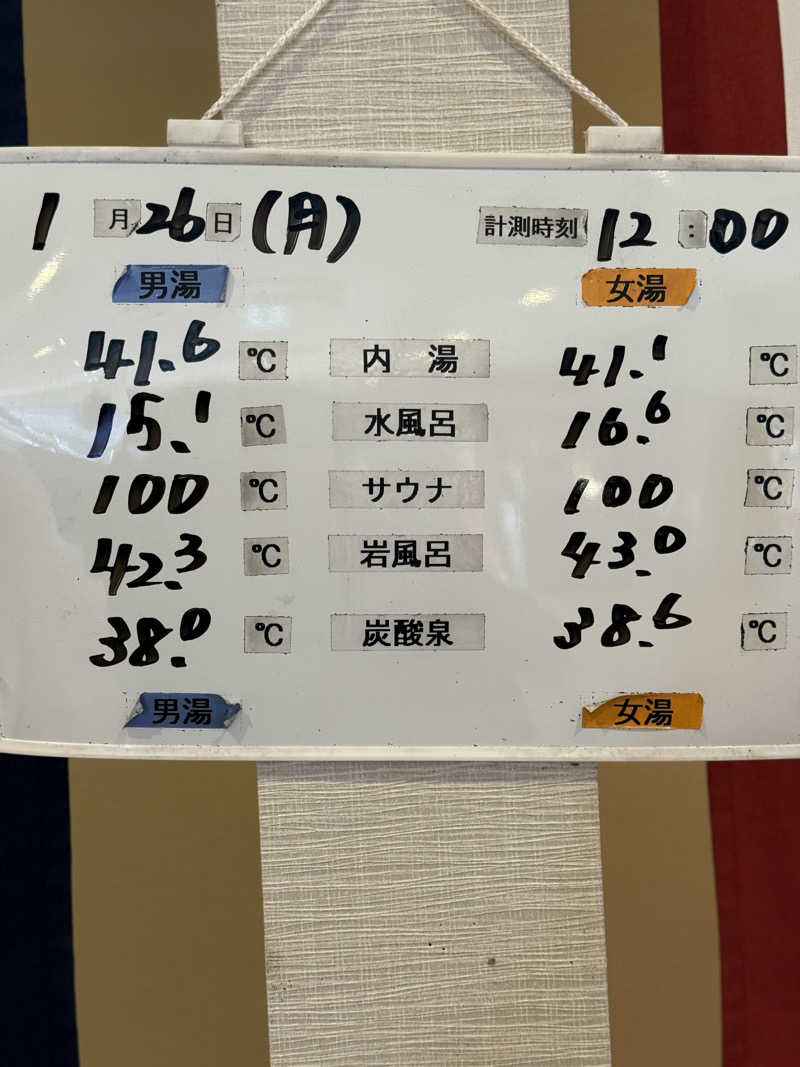 1月26日(月) 計測時刻 12:00
男湯 女湯
41.6 ℃ 内 湯 41.1 ℃
15.1 ℃ 水風呂 16.6 ℃
100 ℃ サウナ 100 ℃
42.3 ℃ 岩風呂 43.0 ℃
38.0 ℃ 炭酸泉 38.6 ℃
男湯 女湯